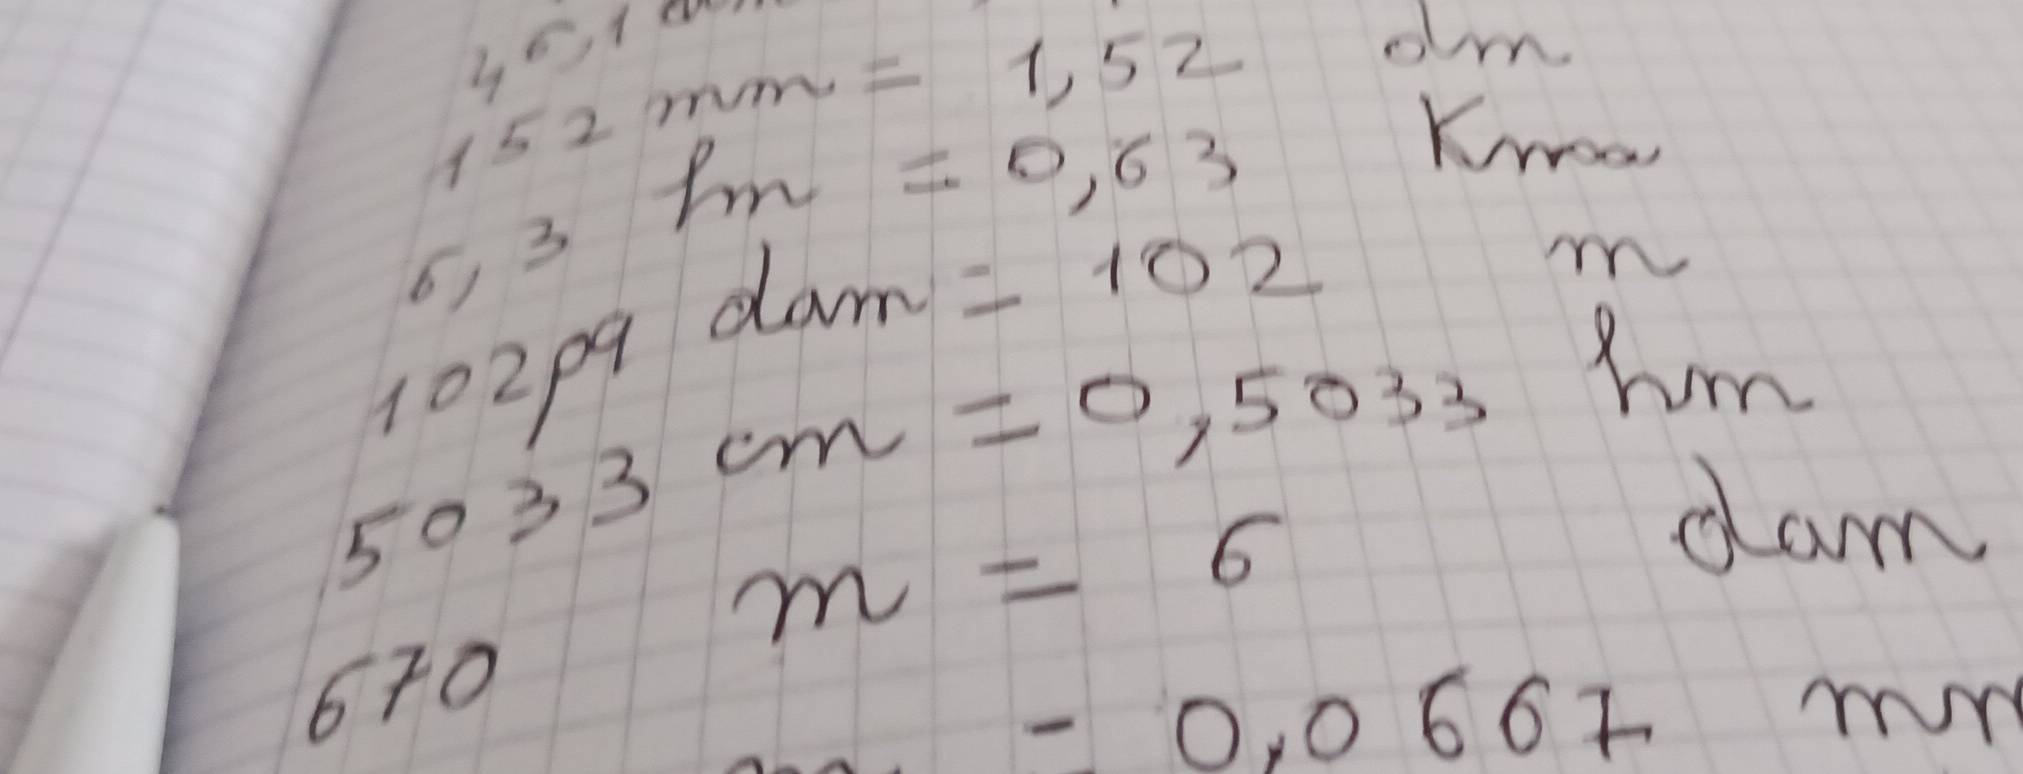 152 mm = 1,52 dm
6,3 hm = 0,63 Km
dam = 102 m
5033 cm = 0,5033 hm
670 m = 6 dam
0,0667